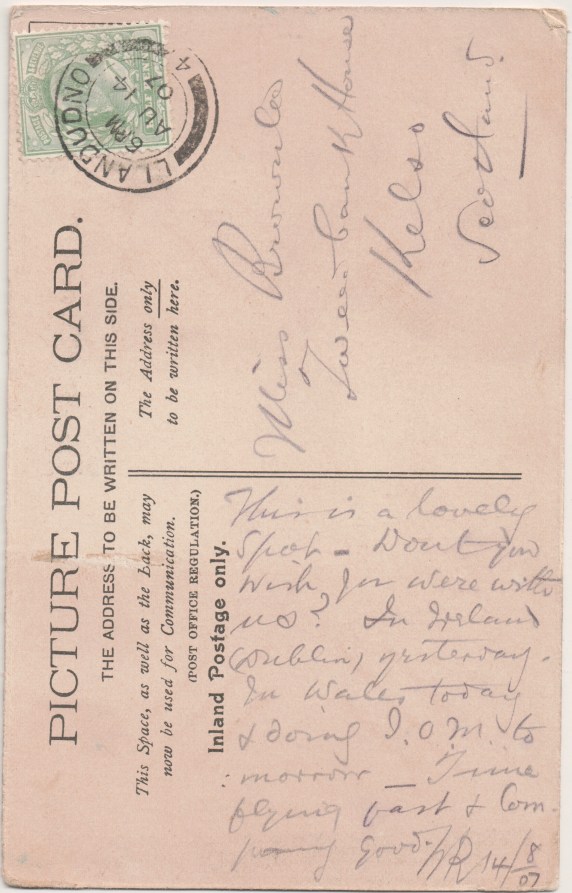 LLANDUDNO
6 PM
AU 14
07
4
PICTURE POST CARD.
THE ADDRESS TO BE WRITTEN ON THIS SIDE.
This Space, as well as the back, may
now be used for Communication.
(POST OFFICE REGULATION.)
Inland Postage only.
The Address only
to be written here.
Miss Brownlee
Tweedbank House
Kelso
Scotland.
This is a lovely
spot – Dont you
wish you were with
us? In Ireland
(Dublin) yesterday.
In Wales today
& doing I.O.M. to
morrow – Time
flying fast & Com-
pany good.
14/8/07